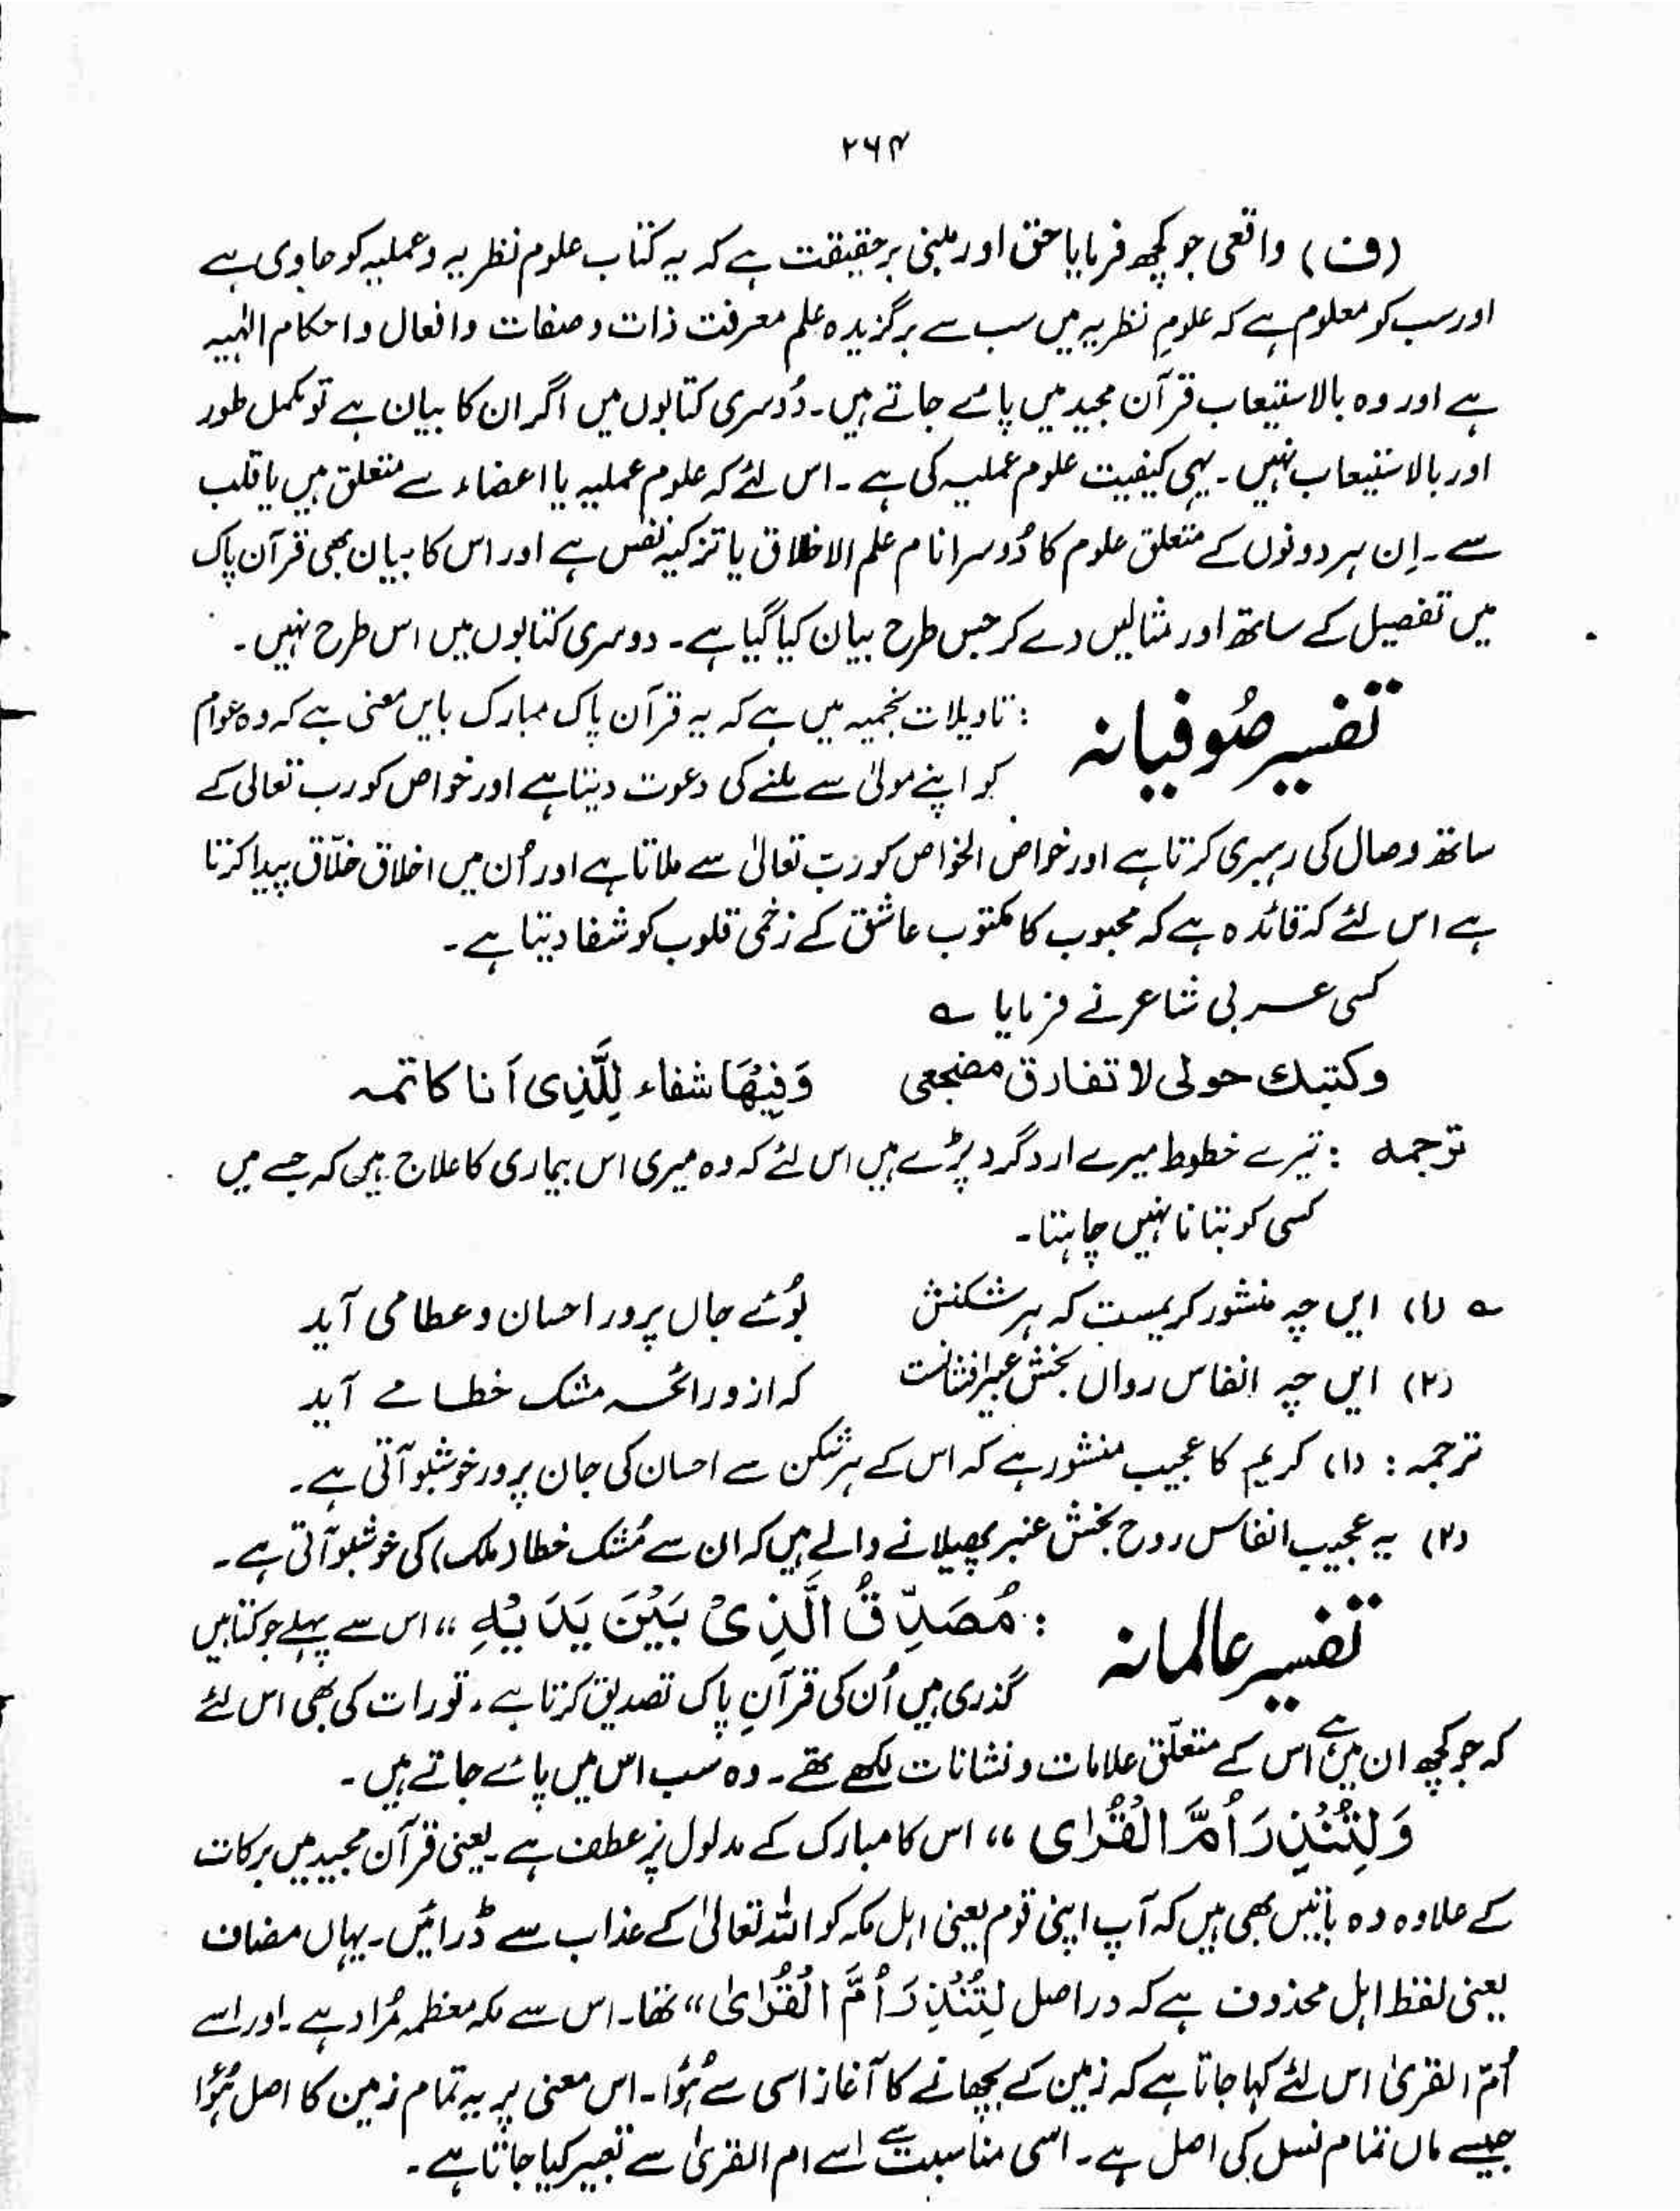 ۲۶۴
(ف) واقعی جو کچھ فرمایا حق اور مبنی برحقیقت ہے کہ یہ کتاب علوم نظریہ و عملیہ کو حاوی ہے
اور سب کو معلوم ہے کہ علومِ نظریہ میں سب سے برگزیدہ علم معرفت ذات و صفات و افعال و احکام الٰہیہ
ہے اور وہ بالاستیعاب قرآن مجید میں پائے جاتے ہیں۔ دُوسری کتابوں میں اگر ان کا بیان ہے تو مکمل طور
اور بالاستیعاب نہیں۔ یہی کیفیت علوم عملیہ کی ہے۔ اس لئے کہ علوم عملیہ یا اعضاء سے متعلق ہیں یا قلب
سے۔ اِن ہر دونوں کے متعلق علوم کا دُوسرا نام علم الاخلاق یا تزکیہ نفس ہے اور اس کا بیان بھی قرآن پاک
میں تفصیل کے ساتھ اور مثالیں دے کر جس طرح بیان کیا گیا ہے۔ دوسری کتابوں میں اس طرح نہیں۔
تفسیر صُوفیانہ : تاویلات نجمیہ میں ہے کہ یہ قرآن پاک مبارک بایں معنی ہے کہ وہ عوام
کو اپنے مولیٰ سے ملنے کی دعوت دیتا ہے اور خواص کو رب تعالیٰ کے
ساتھ وصال کی رہبری کرتا ہے اور خواص الخواص کو ربّ تعالیٰ سے ملاتا ہے اور اُن میں اخلاق خلّاق پیدا کرتا
ہے اس لئے کہ قائدہ ہے کہ محبوب کا مکتوب عاشق کے زخمی قلوب کو شفا دیتا ہے۔
کسی عربی شاعر نے فرمایا ؎
وکتبك حولی لا تفارق مضجعی وَفِیْھَا شفاء لِلَّذِی اَنا کاتمہ
ترجمہ : تیرے خطوط میرے ارد گرد پڑے ہیں اس لئے کہ وہ میری اس بیماری کا علاج ہیں کہ جسے میں
کسی کو بتانا نہیں چاہتا۔
؎ (۱) ایں چہ منشور کریمست کہ ہر شکنش بُوئے جاں پرور احسان و عطا می آید
(۲) ایں چہ انفاس رواں بخش عبیر افشانست کہ ازو رائحہ مشک خطا مے آید
ترجمہ : (۱) کریم کا عجیب منشور ہے کہ اس کے ہر شکن سے احسان کی جان پرور خوشبو آتی ہے۔
(۲) یہ عجیب انفاس روح بخش عنبر پھیلانے والے ہیں کہ ان سے مُشک خطا (ملک) کی خوشبو آتی ہے۔
تفسیر عالمانہ : مُصَدِّقُ الَّذِیْ بَیْنَ یَدَیْہِ ،، اس سے پہلے جو کتابیں
گذری ہیں اُن کی قرآنِ پاک تصدیق کرتا ہے۔ تورات کی بھی اس لئے
کہ جو کچھ ان میں ہے اس کے متعلّق علامات و نشانات لکھے تھے۔ وہ سب اس میں پائے جاتے ہیں۔
وَلِتُنْذِرَ اُمَّ الْقُرٰی ،، اس کا مبارک کے مدلول پر عطف ہے۔ یعنی قرآن مجید میں برکات
کے علاوہ وہ باتیں بھی ہیں کہ آپ اپنی قوم یعنی اہل مکہ کو اللہ تعالیٰ کے عذاب سے ڈرائیں۔ یہاں مضاف
یعنی لفظ اہل محذوف ہے کہ دراصل لِتُنْذِرَ اُمَّ الْقُرٰیٰ ،، تھا۔ اس سے مکہ معظمہ مُراد ہے۔ اور اسے
اُمّ القریٰ اس لئے کہا جاتا ہے کہ زمین کے بچھانے کا آغاز اسی سے ہُوا۔ اس معنی پر یہ تمام زمین کا اصل ہُوا
جیسے ماں تمام نسل کی اصل ہے۔ اسی مناسبت سے اسے ام القریٰ سے تعبیر کیا جاتا ہے۔